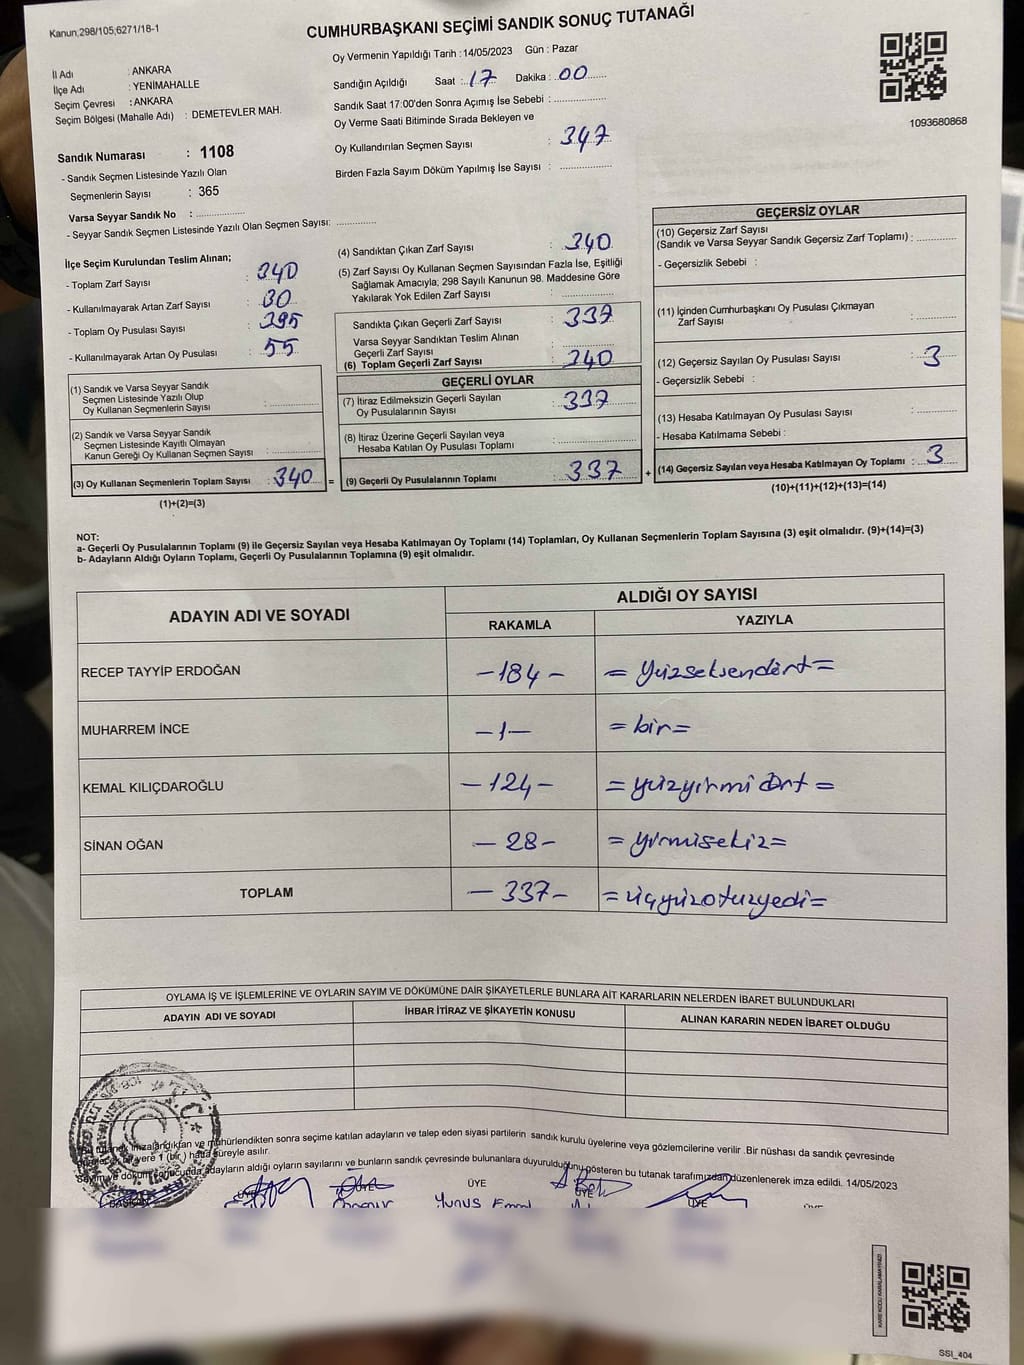 Kanun,298/105;6271/18-1
CUMHURBAŞKANI SEÇİMİ SANDIK SONUÇ TUTANAĞI
Oy Vermenin Yapıldığı Tarih : 14/05/2023 Gün : Pazar
İl Adı : ANKARA
İlçe Adı : YENİMAHALLE
Seçim Çevresi : ANKARA
Seçim Bölgesi (Mahalle Adı) : DEMETEVLER MAH.
Sandığın Açıldığı Saat : 17 Dakika : 00
Sandık Saat 17:00'den Sonra Açımış İse Sebebi :
Oy Verme Saati Bitiminde Sırada Bekleyen ve
Oy Kullandırılan Seçmen Sayısı : 347
Birden Fazla Sayım Döküm Yapılmış İse Sayısı :
1093680868
Sandık Numarası : 1108
- Sandık Seçmen Listesinde Yazılı Olan
Seçmenlerin Sayısı : 365
Varsa Seyyar Sandık No :
- Seyyar Sandık Seçmen Listesinde Yazılı Olan Seçmen Sayısı:
İlçe Seçim Kurulundan Teslim Alınan;
- Toplam Zarf Sayısı : 340
- Kullanılmayarak Artan Zarf Sayısı : 30
- Toplam Oy Pusulası Sayısı : 395
- Kullanılmayarak Artan Oy Pusulası : 55
(1) Sandık ve Varsa Seyyar Sandık
Seçmen Listesinde Yazılı Olup
Oy Kullanan Seçmenlerin Sayısı :
(2) Sandık ve Varsa Seyyar Sandık
Seçmen Listesinde Kayıtlı Olmayan
Kanun Gereği Oy Kullanan Seçmen Sayısı :
(3) Oy Kullanan Seçmenlerin Toplam Sayısı : 340 =
(1)+(2)=(3)
(4) Sandıktan Çıkan Zarf Sayısı : 340
(5) Zarf Sayısı Oy Kullanan Seçmen Sayısından Fazla İse, Eşitliği
Sağlamak Amacıyla; 298 Sayılı Kanunun 98. Maddesine Göre
Yakılarak Yok Edilen Zarf Sayısı :
Sandıkta Çıkan Geçerli Zarf Sayısı : 337
Varsa Seyyar Sandıktan Teslim Alınan
Geçerli Zarf Sayısı :
(6) Toplam Geçerli Zarf Sayısı : 340
GEÇERLİ OYLAR
(7) İtiraz Edilmeksizin Geçerli Sayılan
Oy Pusulalarının Sayısı : 337
(8) İtiraz Üzerine Geçerli Sayılan veya
Hesaba Katılan Oy Pusulası Toplamı :
(9) Geçerli Oy Pusulalarının Toplamı : 337 +
GEÇERSİZ OYLAR
(10) Geçersiz Zarf Sayısı
(Sandık ve Varsa Seyyar Sandık Geçersiz Zarf Toplamı) :
- Geçersizlik Sebebi :
(11) İçinden Cumhurbaşkanı Oy Pusulası Çıkmayan
Zarf Sayısı :
(12) Geçersiz Sayılan Oy Pusulası Sayısı : 3
- Geçersizlik Sebebi :
(13) Hesaba Katılmayan Oy Pusulası Sayısı :
- Hesaba Katılmama Sebebi :
(14) Geçersiz Sayılan veya Hesaba Katılmayan Oy Toplamı : 3
(10)+(11)+(12)+(13)=(14)
NOT:
a- Geçerli Oy Pusulalarının Toplamı (9) ile Geçersiz Sayılan veya Hesaba Katılmayan Oy Toplamı (14) Toplamları, Oy Kullanan Seçmenlerin Toplam Sayısına (3) eşit olmalıdır. (9)+(14)=(3)
b- Adayların Aldığı Oyların Toplamı, Geçerli Oy Pusulalarının Toplamına (9) eşit olmalıdır.
ADAYIN ADI VE SOYADI ALDIĞI OY SAYISI
RAKAMLA YAZIYLA
RECEP TAYYİP ERDOĞAN -184- =Yüzseksendört=
MUHARREM İNCE -1- =bir=
KEMAL KILIÇDAROĞLU -124- =yüzyirmi dört=
SİNAN OĞAN -28- =yirmisekiz=
TOPLAM -337- =üçyüzotuzyedi=
OYLAMA İŞ VE İŞLEMLERİNE VE OYLARIN SAYIM VE DÖKÜMÜNE DAİR ŞİKAYETLERLE BUNLARA AİT KARARLARIN NELERDEN İBARET BULUNDUKLARI
ADAYIN ADI VE SOYADI İHBAR İTİRAZ VE ŞİKAYETİN KONUSU ALINAN KARARIN NEDEN İBARET OLDUĞU
Bu tutanak imzalandıktan ve mühürlendikten sonra seçime katılan adayların ve talep eden siyasi partilerin sandık kurulu üyelerine veya gözlemcilerine verilir .Bir nüshası da sandık çevresinde
bir yere 1 (bir) hafta süreyle asılır.
Sayım ve döküm sonucunda adayların aldığı oyların sayılarını ve bunların sandık çevresinde bulunanlara duyurulduğunu gösteren bu tutanak tarafımızdan düzenlenerek imza edildi. 14/05/2023
BAŞKAN ÜYE ÜYE ÜYE ÜYE ÜYE ÜYE
Yunus
SSI_404